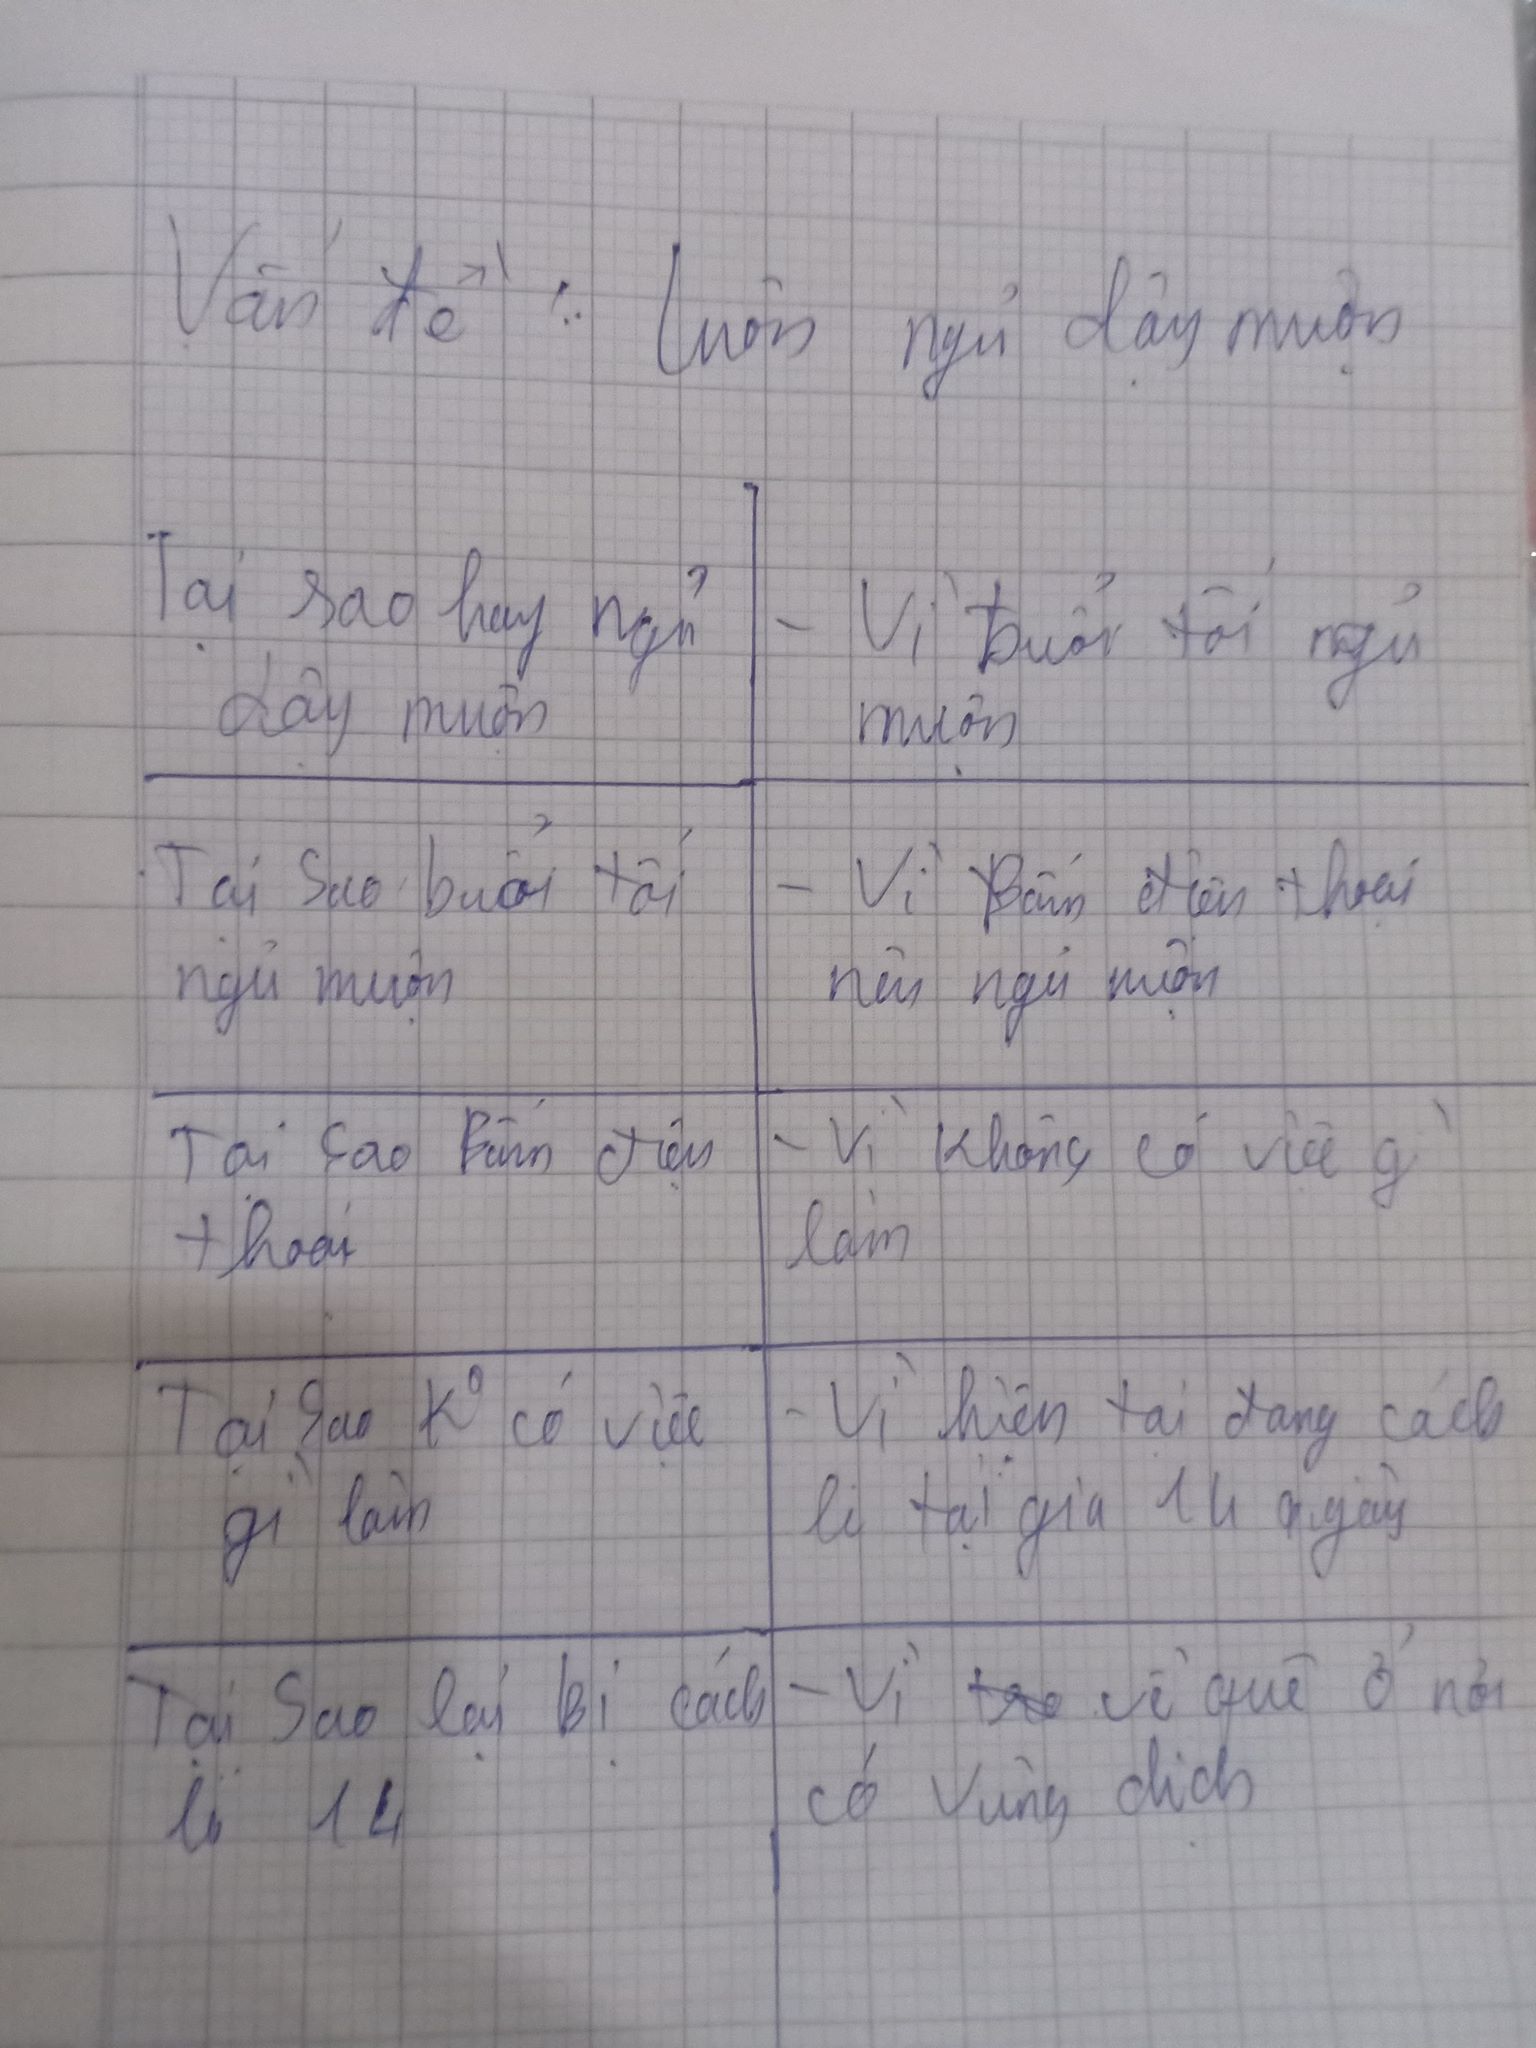 Vấn đề : luôn ngủ dậy muộn
Tại sao hay ngủ
dậy muộn
- Vì buổi tối ngủ
muộn
Tại sao buổi tối
ngủ muộn
- Vì Bấm điện thoại
nên ngủ muộn
Tại sao Bấm điện
thoại
- Vì không có việc gì
làm
Tại sao k° có việc
gì làm
- Vì hiện tại đang cách
li tại gia 14 ngày
Tại sao lại bị cách
li 14
- Vì về quê ở nơi
có vùng dịch